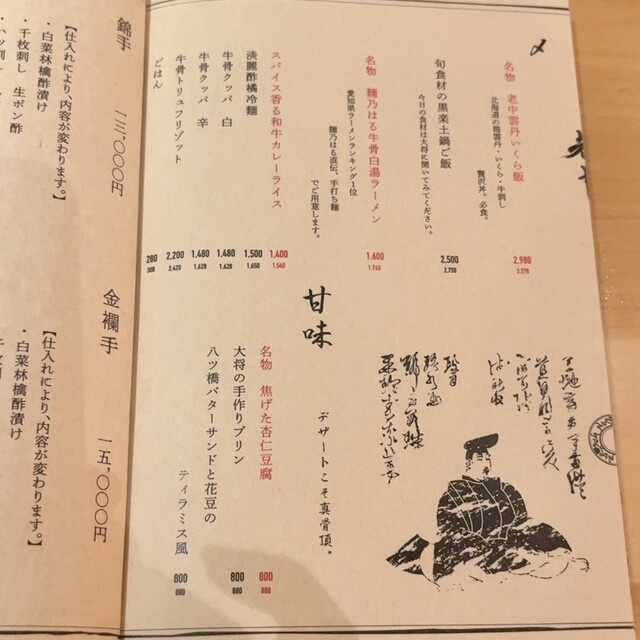 〆
名物　老中雲丹いくら飯
北海道の箱雲丹・いくら・牛刺し
贅沢丼。必食。
2,980
3.278
旬食材の黒楽土鍋ご飯
今日の食材は大将に聞いてみてください。
2,500
2.750
名物　麺乃はる牛骨白湯ラーメン
愛知県ラーメンランキング1位
麺乃はる直伝、手打ち麺
でご用意します。
1,600
1.760
スパイス香る和牛カレーライス
1,400
1.540
淡麗酢橘冷麺
1,500
1.650
牛骨クッパ　白
1,480
1.628
牛骨クッパ　辛
1,480
1.628
牛骨トリュフリゾット
2,200
2.420
ごはん
280
308
甘味
デザートこそ真骨頂。
名物　焦げた杏仁豆腐
800
880
大将の手作りプリン
800
880
八ツ橋バターサンドと花豆の
ティラミス風
800
880
錦手　一三、〇〇〇円
【仕入れにより、内容が変わります。】
・白菜林檎酢漬け
・千枚刺し　生ポン酢
金襴手　一五、〇〇〇円
【仕入れにより、内容が変わります。】
・白菜林檎酢漬け